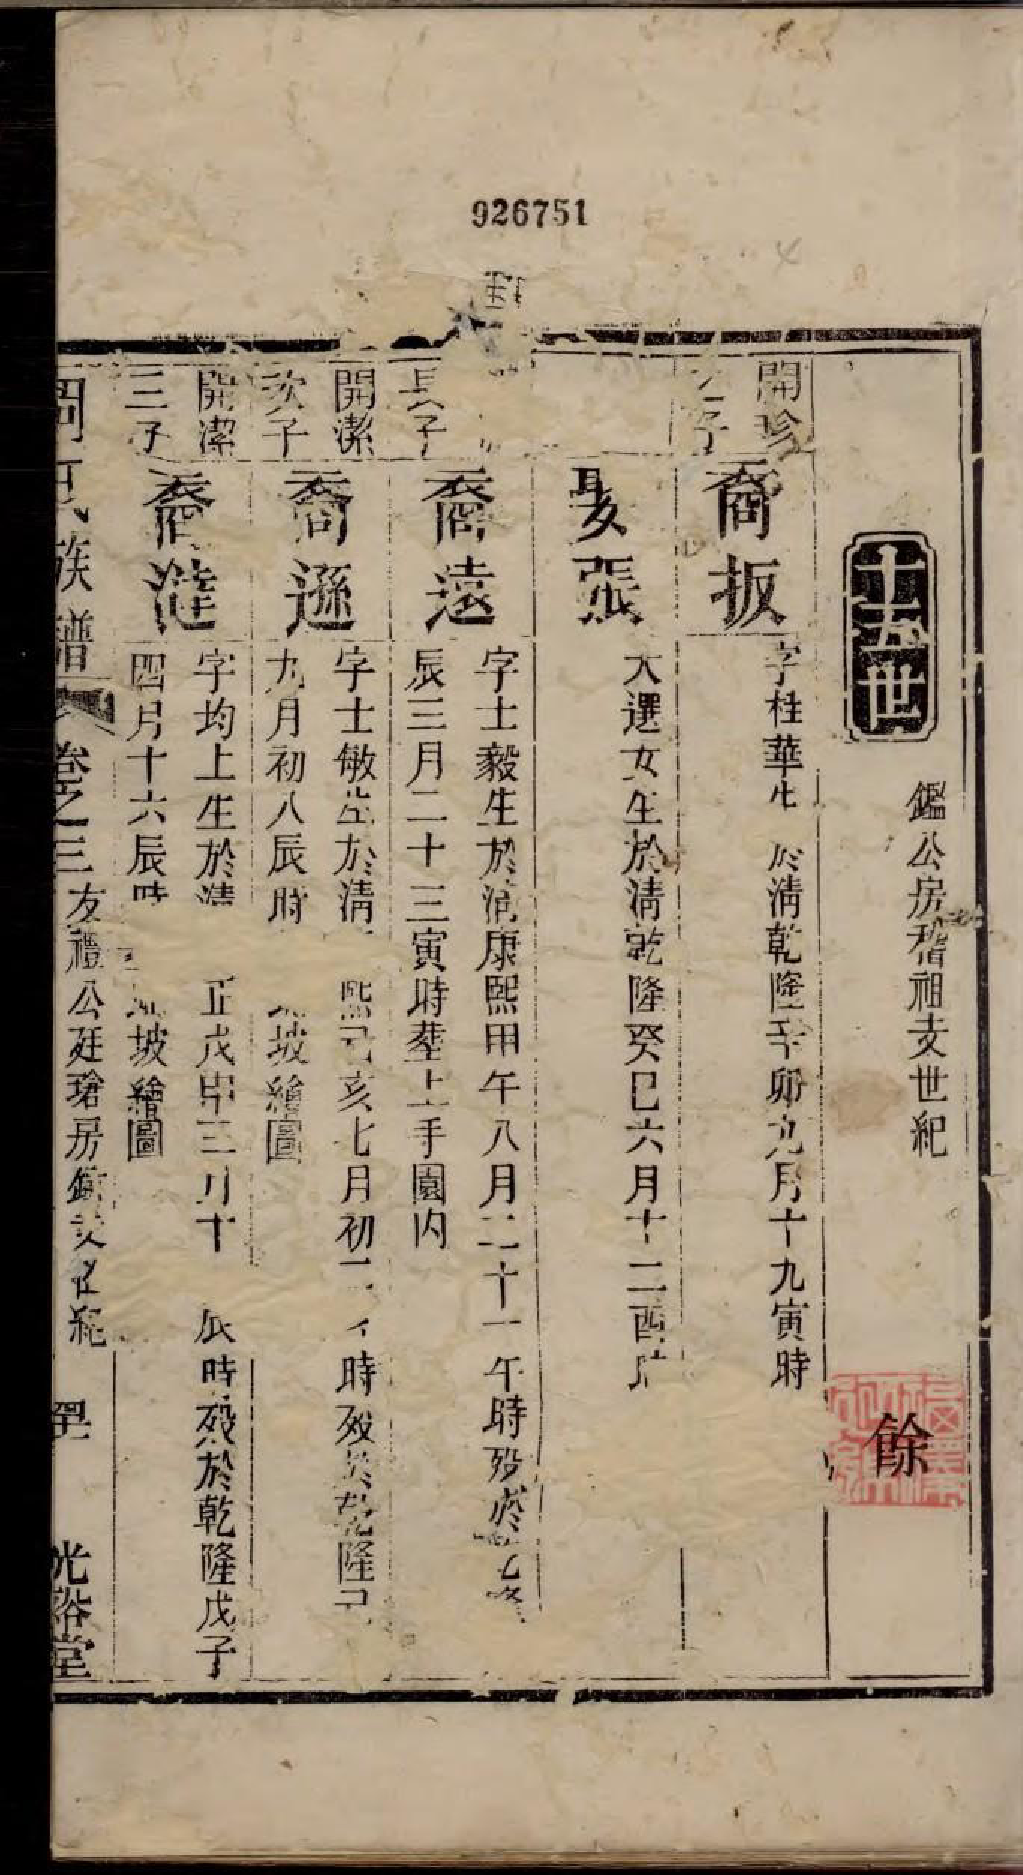 926751
十五世
鑑公房稽祖支世紀
餘
開珍
子
裔扳
字桂華生於清乾隆辛卯九月十九寅時
張
大選女生於清乾隆癸巳六月十二酉時
長子
裔遠
字士毅生於清康熙甲午八月二十一午時歿於乾隆
辰三月二十三寅時塟上手園内
開潔
次子
裔遜
字士敏生於清熙己亥七月初二時歿於乾隆己
九月初八辰時坡繪圖
開潔
三子
裔漣
字均上生於清正戊申三月十辰時歿於乾隆戊子
四月十六辰時坡繪圖
氏族譜
卷之三
友禮公廷瑲房
光裕堂